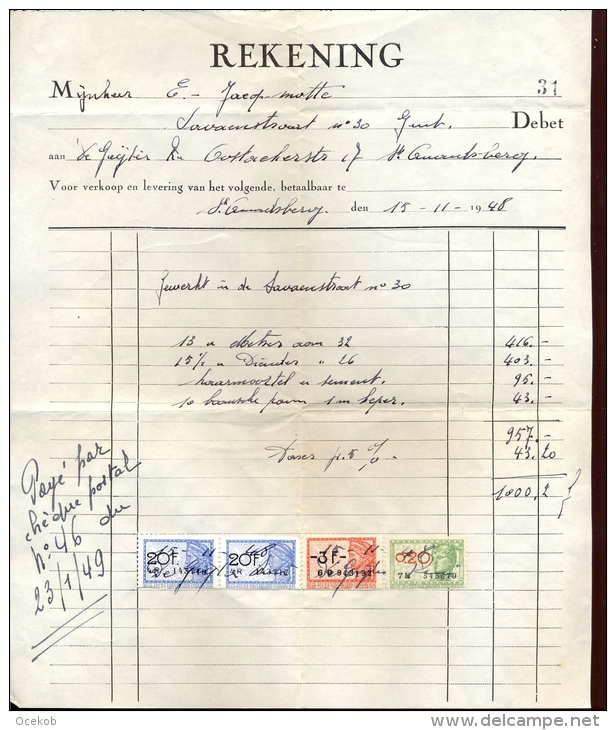 REKENING
Mijnheer E. - Jacqmotte 31
Savaenstraat nº 30 Gent. Debet
aan De Guijter Oostackerstr 17 St Amandsberg.
Voor verkoop en levering van het volgende, betaalbaar te
St Amandsberg, den 15 - 11 - 1948
Gewerkt in de Savaenstraat nº 30
13 u Metser aan 32 416.-
15½ u Diender " 26 403.-
haarmortel u sement. 95.-
10 1m keper. 43.-
957.-
Taxes 5 % - 43.20
1000.2
Payé par
chèque postal
Nº 46 du
23/1/49
20F. 20F. -3F.- 0.20
15 - 11 48 15 - 11
7M 543670
Ocekob
delcampe.net